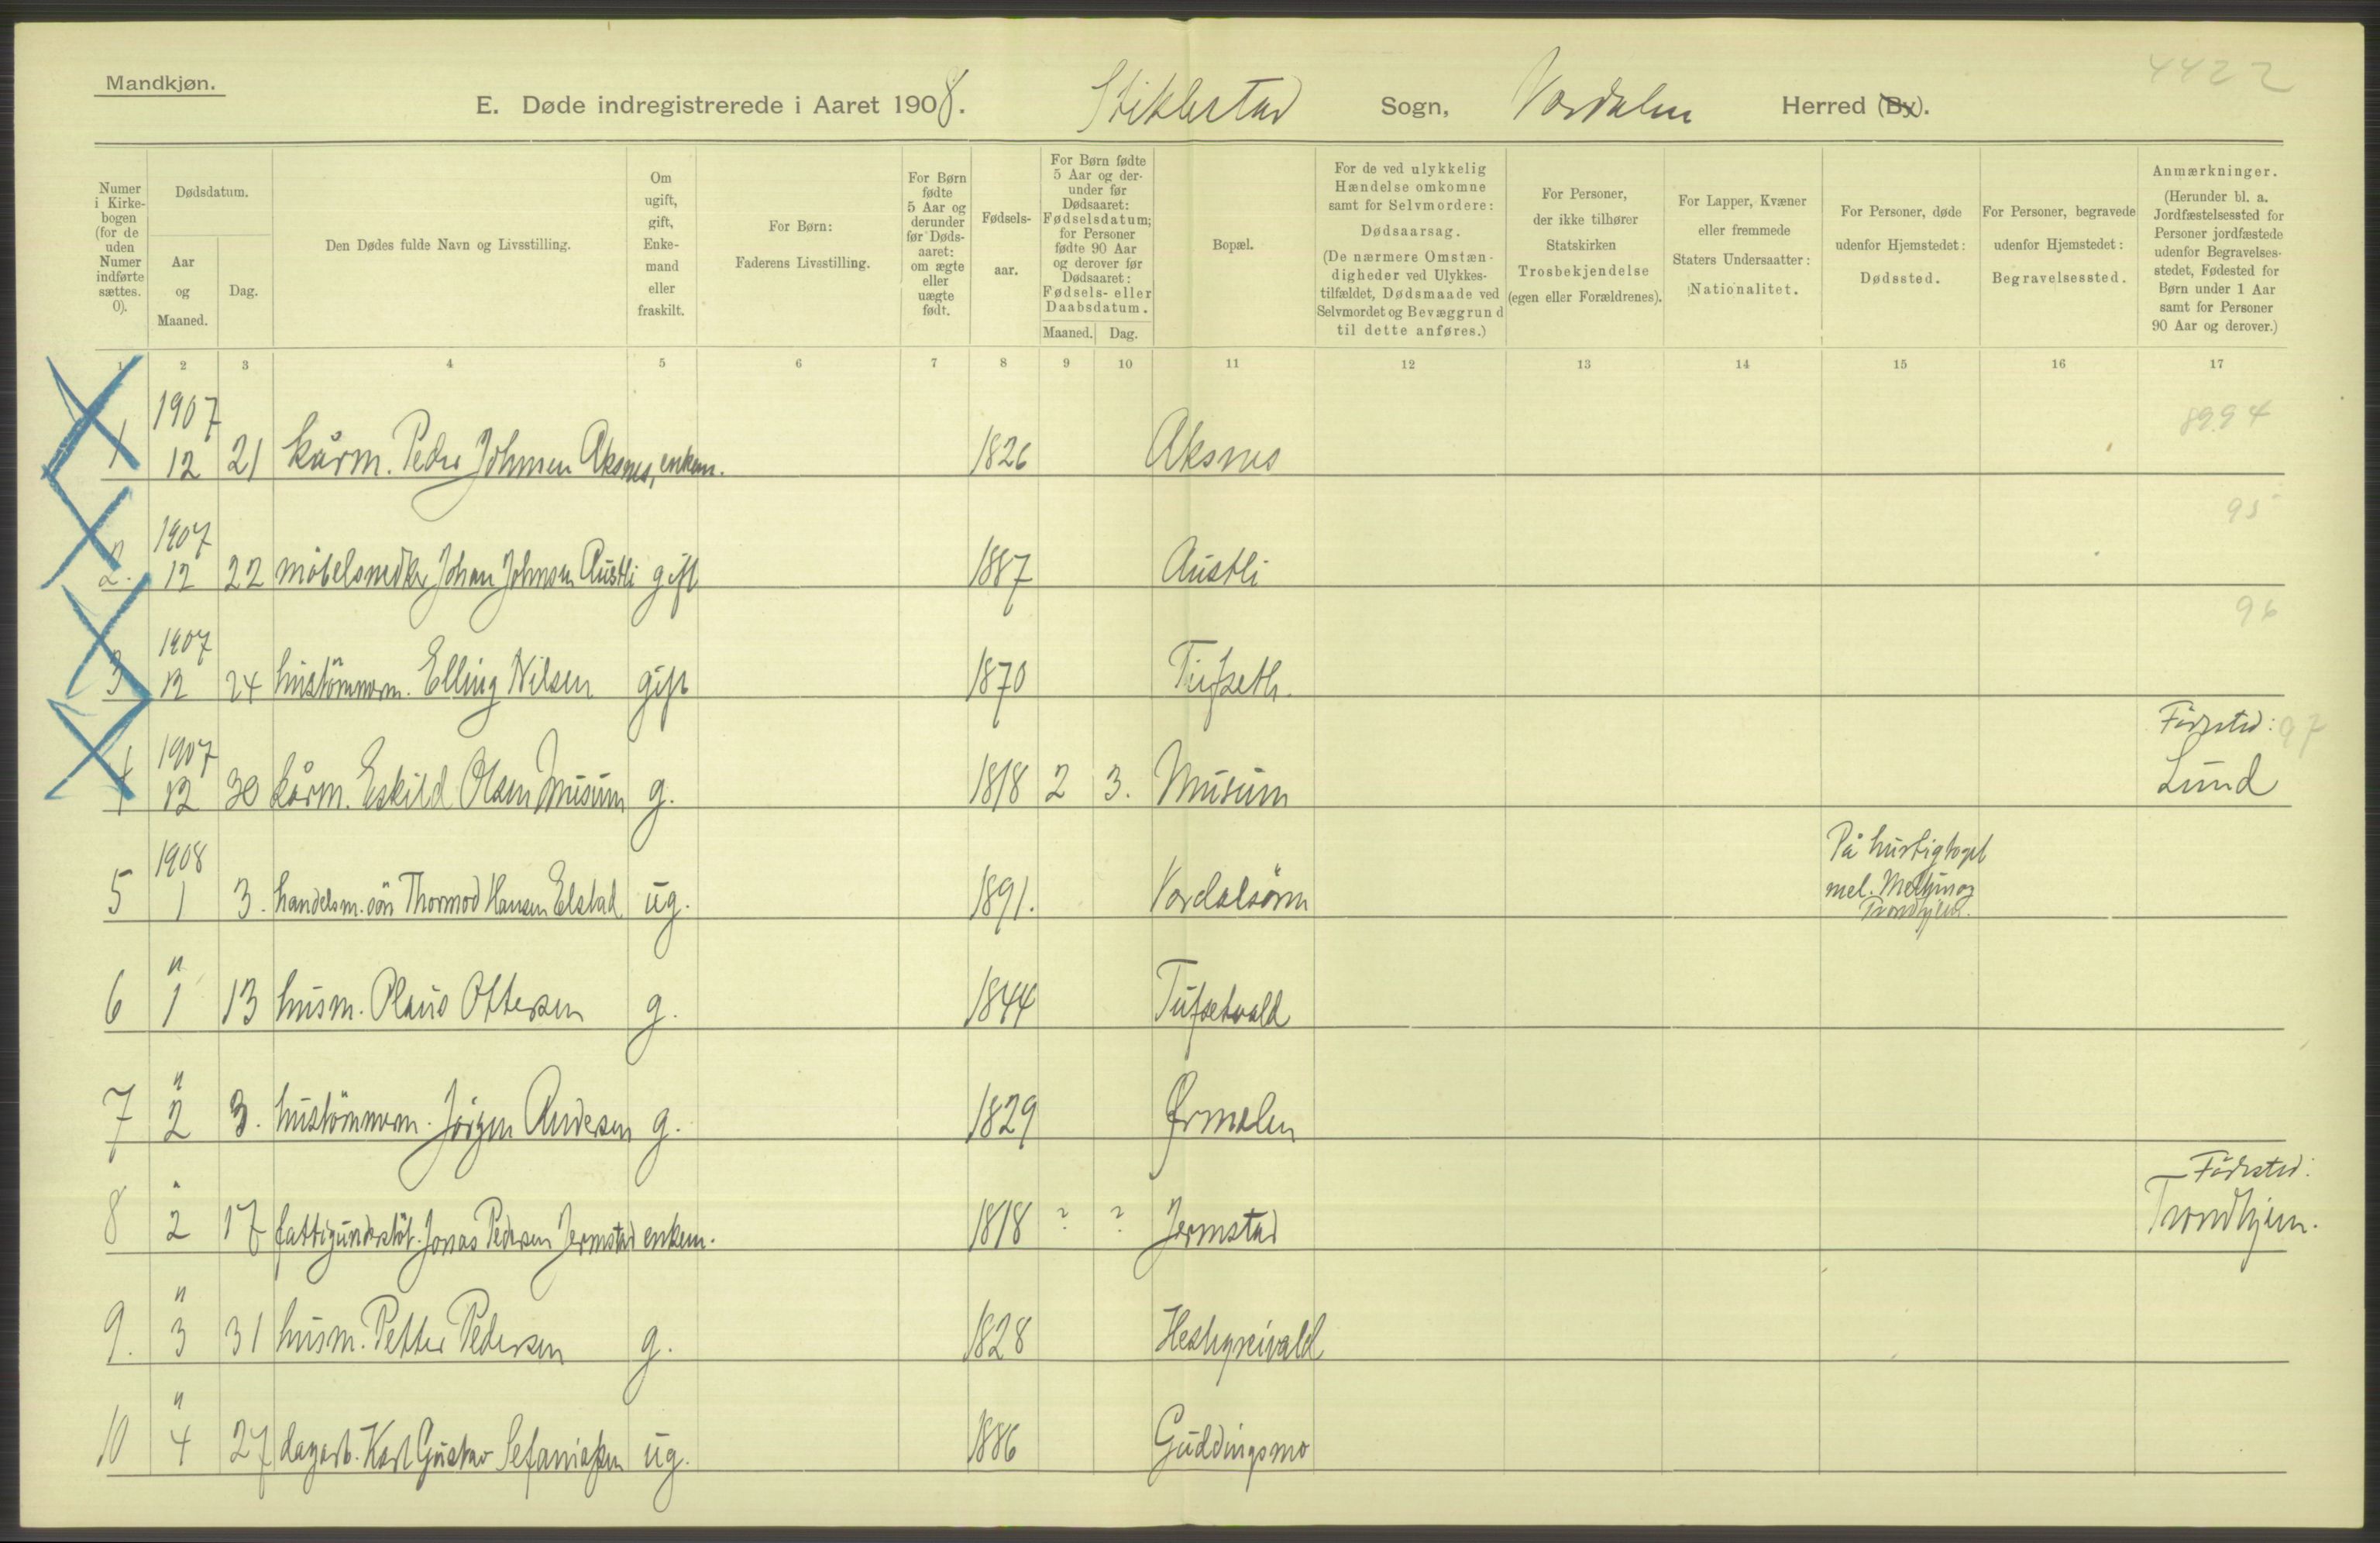 Mandkjøn.
4422
E. Døde indregistrerede i Aaret 1908. Stiklestad Sogn, Værdalen Herred (By).
Numer i Kirke-bogen (for de uden Numer indførte sættes. 0).
Dødsdatum.
Aar og Maaned.
Dag.
Den Dødes fulde Navn og Livsstilling.
Om ugift, gift, Enke-mand eller fraskilt.
For Børn: Faderens Livsstilling.
For Børn fødte 5 Aar og derunder før Døds-aaret: om ægte eller uægte født.
Fødsels-aar.
For Børn fødte 5 Aar og der-under før Dødsaaret: Fødselsdatum; for Personer fødte 90 Aar og derover før Dødsaaret: Fødsels- eller Daabsdatum.
Maaned. Dag.
Bopæl.
For de ved ulykkelig Hændelse omkomne samt for Selvmordere: Dødsaarsag. (De nærmere Omstæn-digheder ved Ulykkes-tilfældet, Dødsmaade ved Selvmordet og Bevæggrund til dette anføres.)
For Personer, der ikke tilhører Statskirken Trosbekjendelse (egen eller Forældrenes).
For Lapper, Kvæner eller fremmede Staters Undersaatter: Nationalitet.
For Personer, døde udenfor Hjemstedet: Dødssted.
For Personer, begravede udenfor Hjemstedet: Begravelsessted.
Anmærkninger. (Herunder bl. a. Jordfæstelsessted for Personer jordfæstede udenfor Begravelses-stedet, Fødested for Børn under 1 Aar samt for Personer 90 Aar og derover.)
1 2 3 4 5 6 7 8 9 10 11 12 13 14 15 16 17
1 1907 12 21 kårm. Peder Johnsen Aksnes, enkem. 1826 Aksnes 8994
2. 1907 12 22 möbelsnedker Johan Johnsen Austli gift 1887 Austli 95
3 1907 12 24 hustömmerm. Elling Nilsen gift 1870 Tufseth. 96
4 1907 12 30 kårm. Eskild Olsen Musum g. 1818 2 3. Musum Födested: Lund 97
5 1908 1 3. handelsm. sön Thormod Hansen Elstad ug. 1891. Værdalsören På hurtigtoget mel. og Trondhjem.
6 " 1 13 husm. Olaus Ottersen g. 1844 Tufsetvald
7 " 2 3. hustömmerm. Jörgen Andersen g. 1829 Ørmelen
8 " 2 17 fattigunderstöt. Jonas Pedersen Jermstad enkem. 1818 ? ? Jermstad Födested: Trondhjem.
9. " 3 31 husm. Petter Pedersen g. 1828
10 " 4 27 dagarb. Karl Gustav Sefaniassen ug. 1886 Guddingsmo